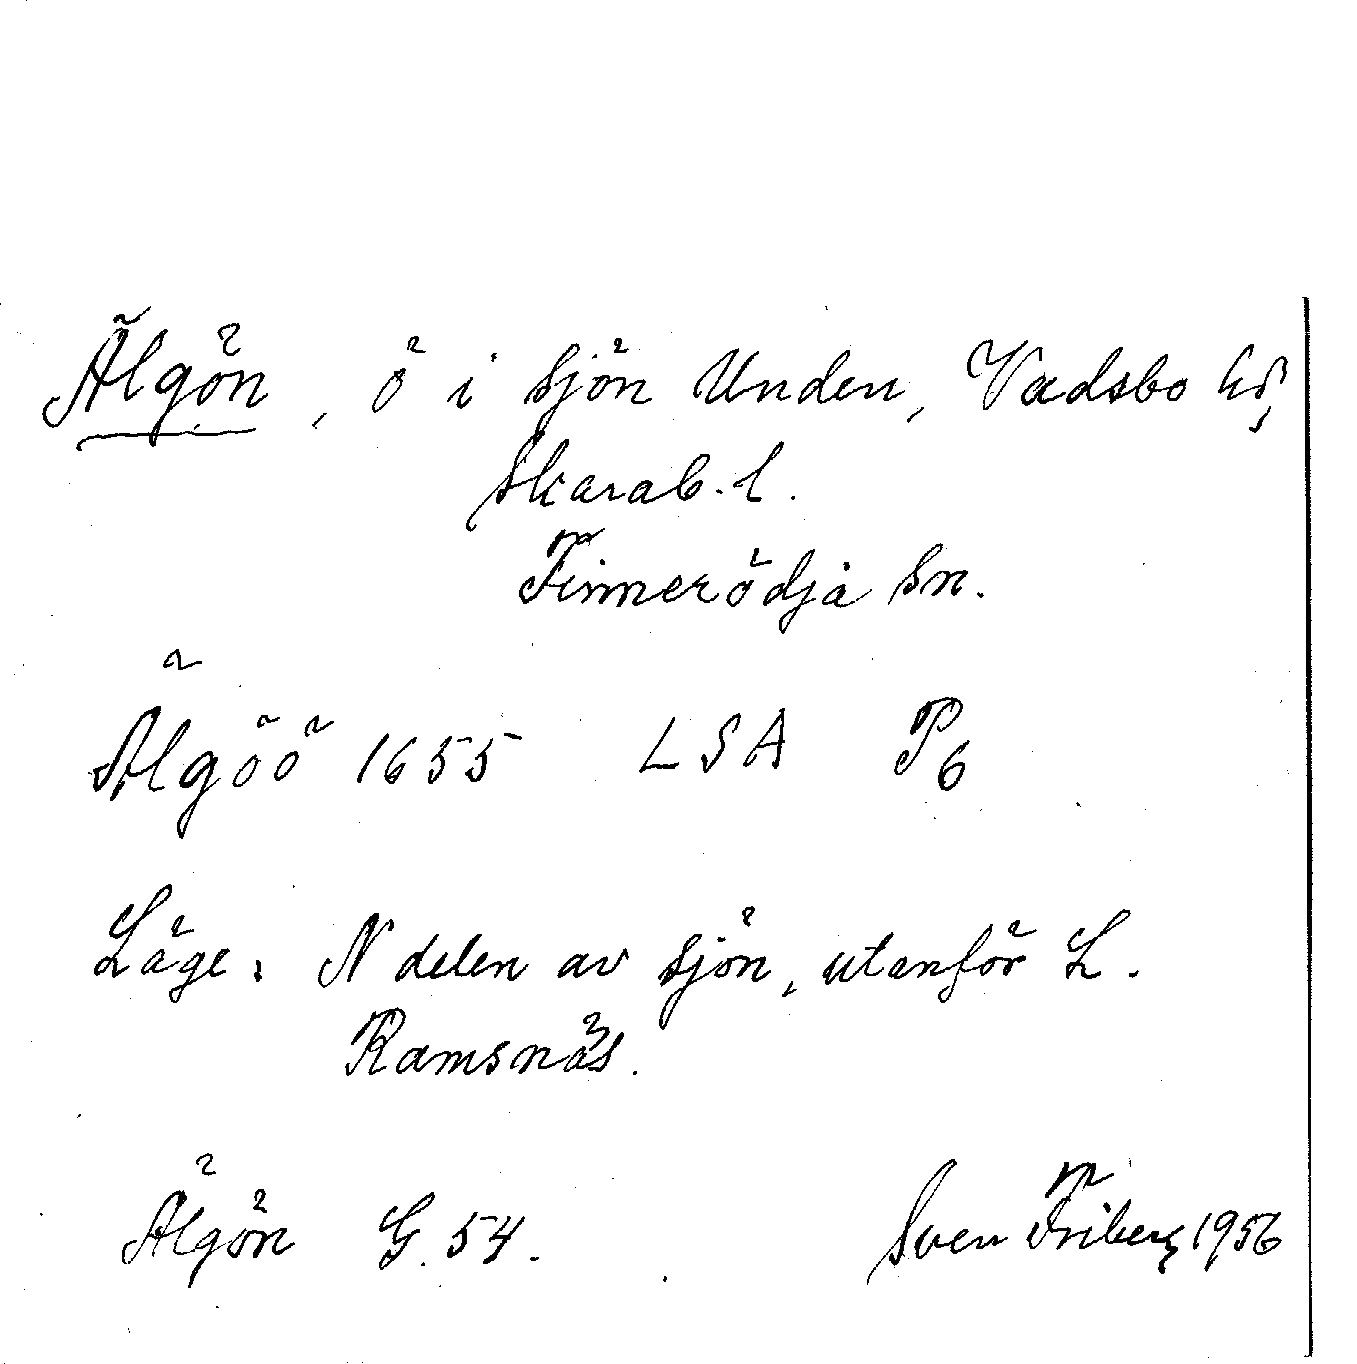 Älgön, ö i sjön Unden, Vadsbo hd,
Skarab. l.
Finnerödja sn.
Älgöö 1655 LSA P6
Läge: N delen av sjön, utanför L.
Ramsnäs.
Älgön G. 54.
Sven Friberg 1956